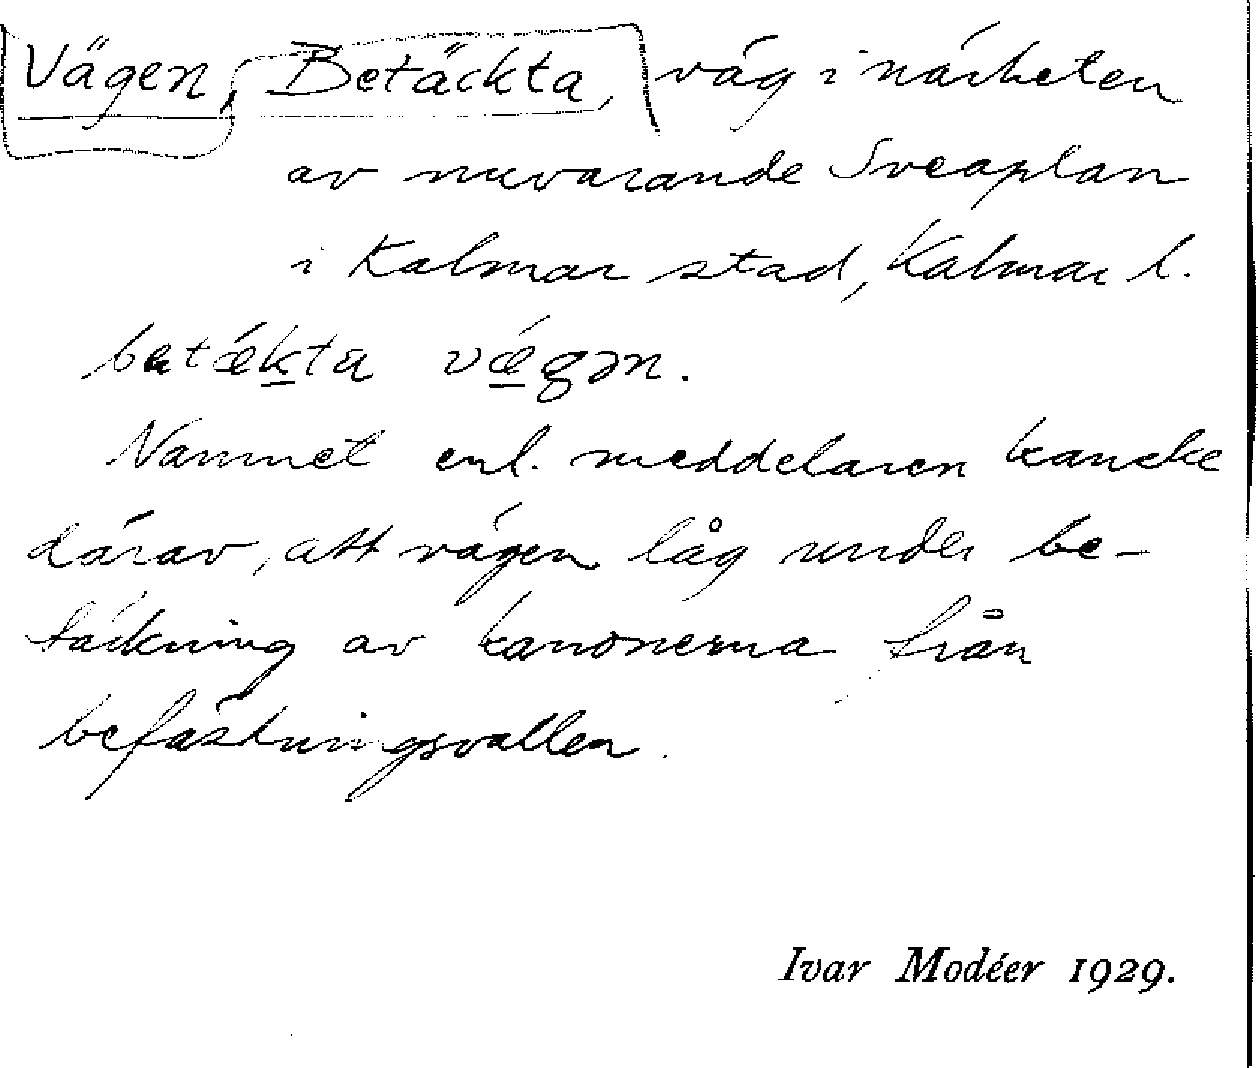 Vägen, Betäckta, väg i närheten
av nuvarande Sveaplan
i Kalmar stad, Kalmar l.
betǽkta vǽgən.
Namnet enl. meddelaren kanske
därav, att vägen låg under be-
täckning av kanonerna från
befästningsvallen.
Ivar Modéer 1929.